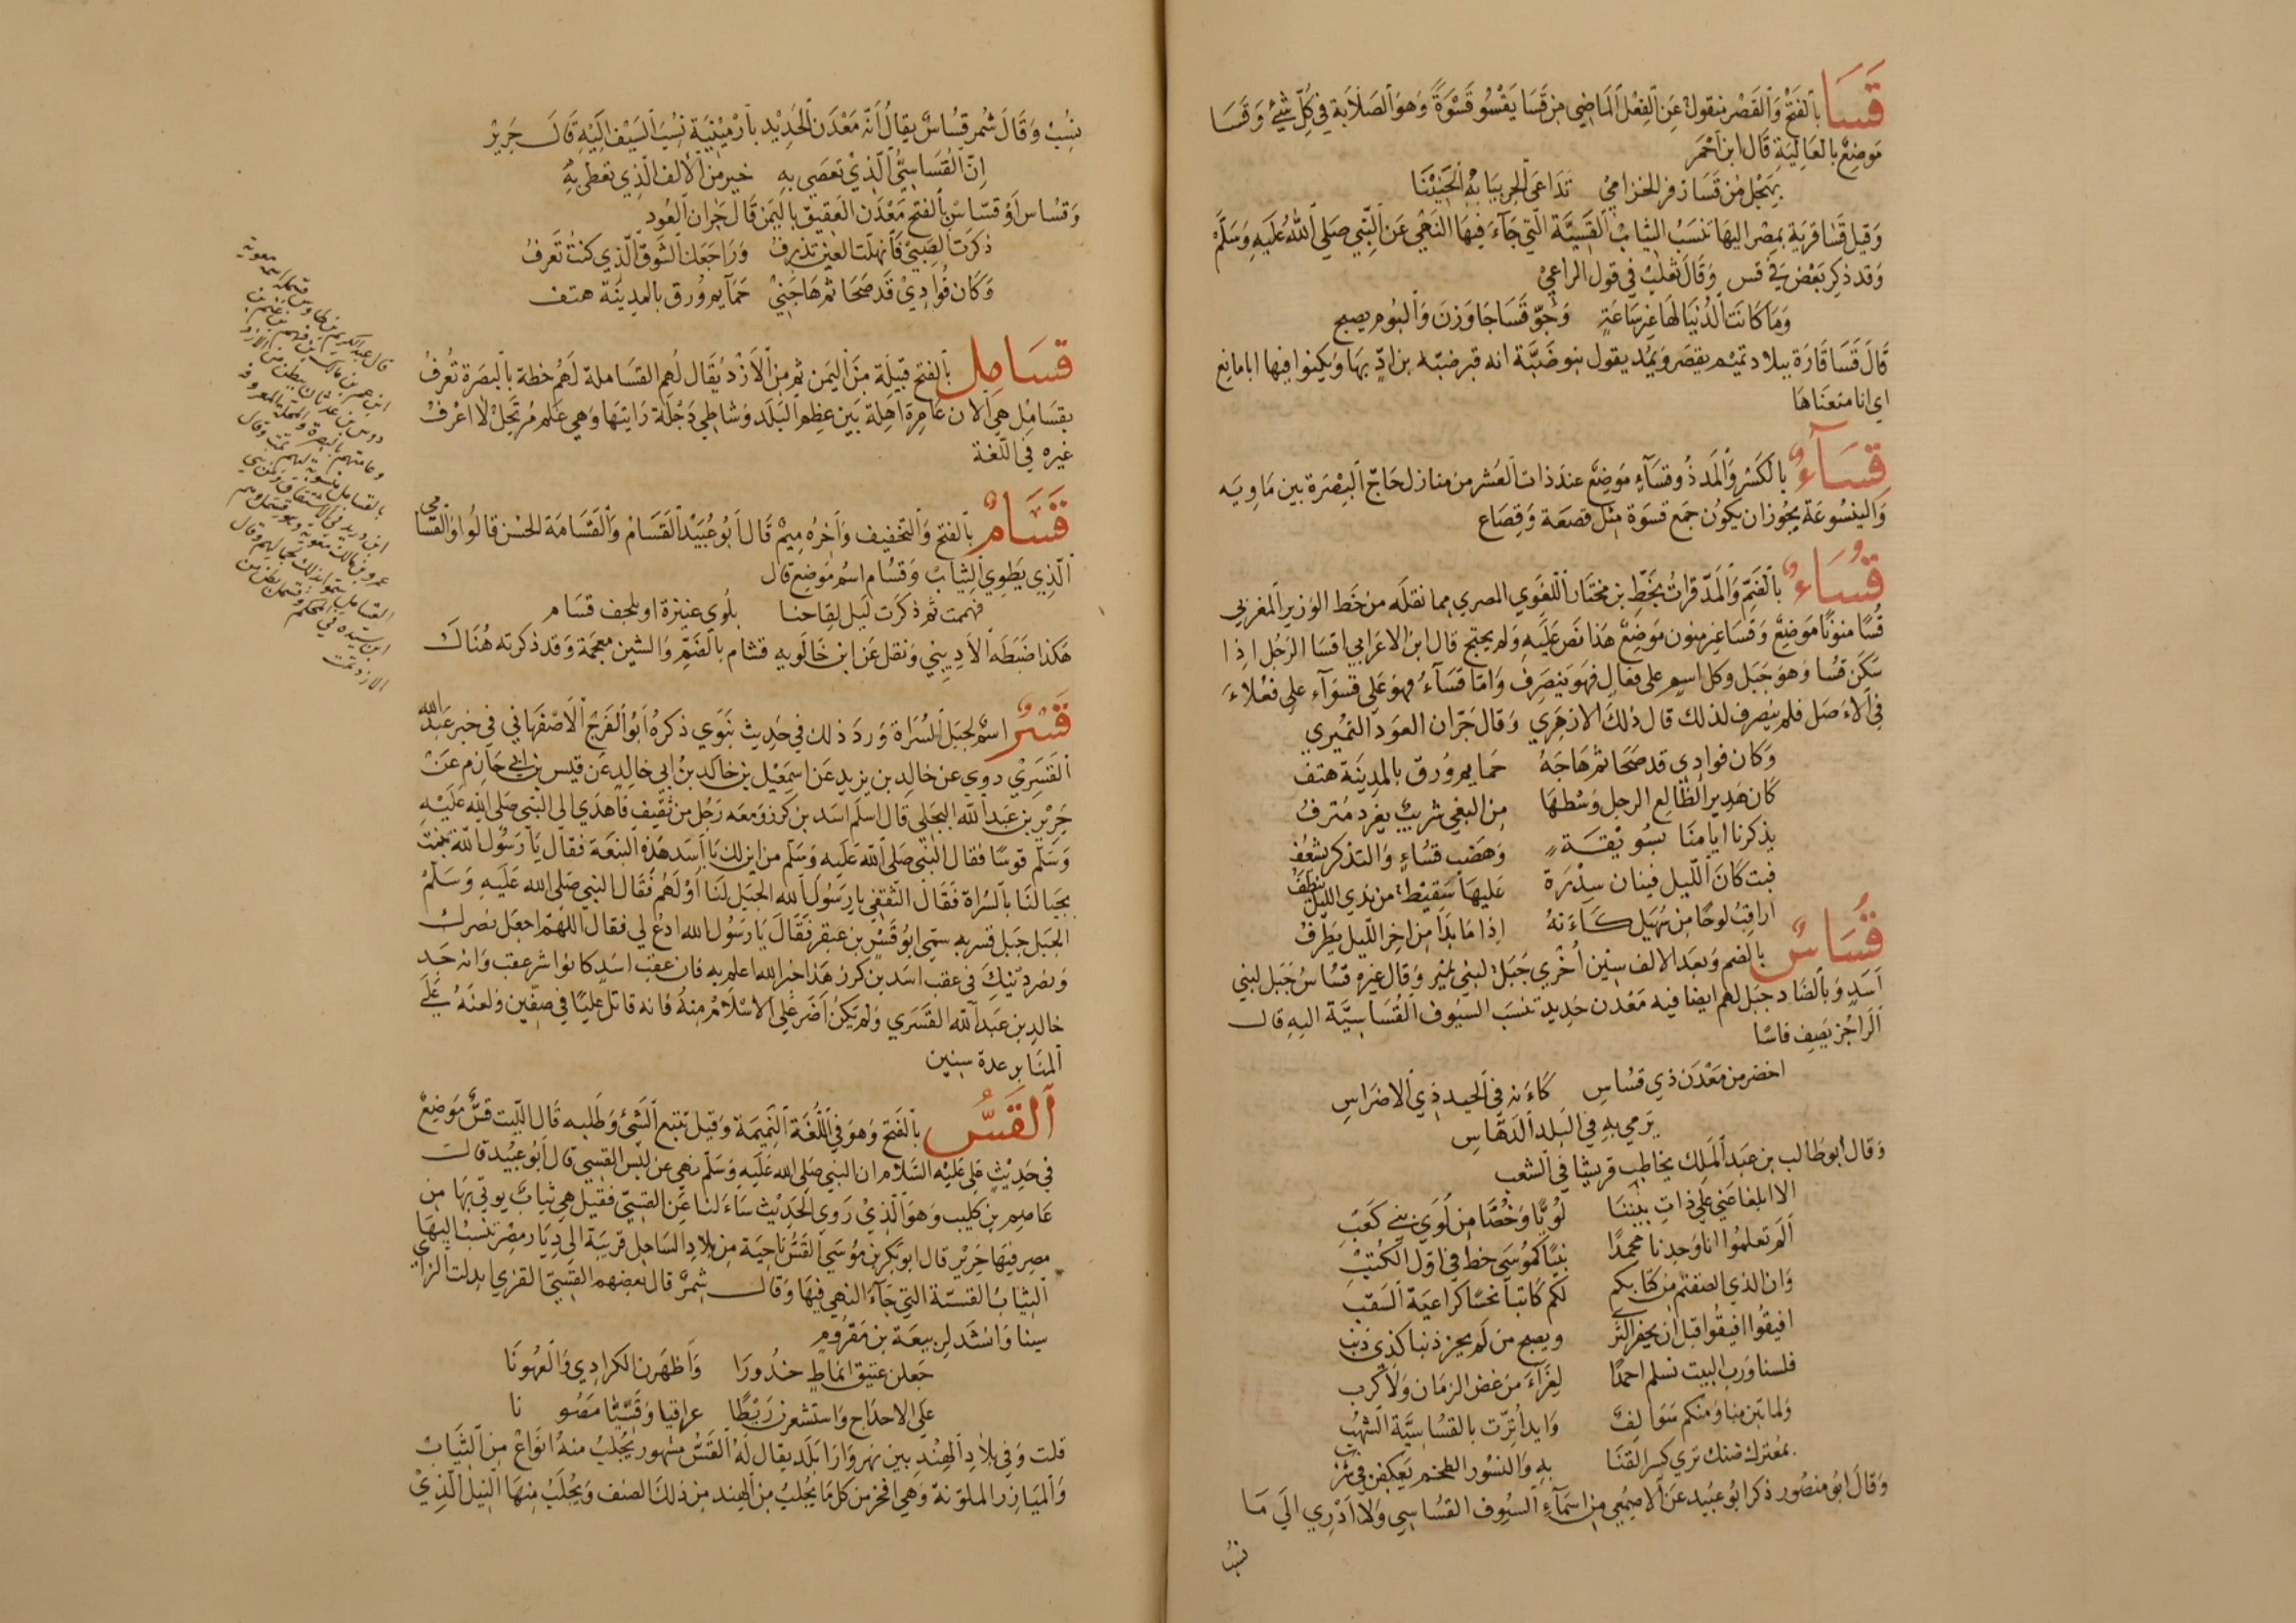 قَسَا بالفَتْح وَالقَصْر منقول عَن الفِعْل المَاضِي من قَسَا يَقْسُو قَسْوَةً وَهوَ الصَلَابَة في كُلّ شَيْءٍ وَقَسَا
مَوضِعٌ بالعَالِيَةِ قَال ابن أحْمَر
بهَجْل مِن قَسَا ذفر الخزامي تَدَاعَى الجربيَا بهِ الحَنِيْنَا
وَقيل قَسَا قريَة بمِصْر اليهَا تنسَبُ الثِيَابُ القَسِيَّة الَّتي جَاءَ فيهَا النَهْي عَن النَّبِي صَلى اللهُ عَلَيهِ وَسَلَّم
وَقد ذكِر بَعْض في قس وَقَالَ ثعْلَبْ في قول الراعِيْ
وَمَا كانَتِ الدُنيَا لهَا غير سَاعَةٍ وَجُوّ قَسَا جَاوَزنَ وَالبُوم يصبح
قَالَ قَسَا قَارَة ببلاد تميْم يقصَر وَيمُد يقول بنو ضَبَّة انه قبر ضبّه بن ادّ بهَا وَيكنوا فيها ابا مانع
اي انا منعنَاهَا
قِسَآءٌ بالكَسْر وَالمَد ذُو قسَآءٍ مَوضِعٌ عندَ ذات العُشر من منازل حَاجّ البصْرَة بين مَاويَه
وَالينسُوعَة يجُوز ان يكُون جَمع قسوَة مِثل قصعَة وَقِصَاع
قُسَاءٌ بالضَمّ وَالمَدّ قراتُ بخَطّ بن مختَار اللغَوي المصري مما نقلَه من خَط الوَزير المغربي
قُسًا منونًا مَوضِعٌ وَقسَا غير منون مَوضِعٌ هَذا نصَّ عَلَيهِ وَلم يحتج قال ابن الاعرَابي اقسَا الرَجُل اذا
سَكَن قسُا وَهوَ جَبَل وكل اسم على فعالٍ فهوَ ينصَرِف وَامّا قسَآءُ فهوَ عَلى قسوَآء على فعْلاءَ
في الاصَل فلم ينصَرِف لذلك قال ذلكَ الازهَري وَقال جَرّان العوَد النُميْري
وَكان فوادِي قد صَحَا ثم هَاجَهُ حَمايم وُرق بالمدِينَة هتفُ
كَان هَدير الظالع الرجل وَسْطهَا مِن البغي شريبٌ يغرد مُترفُ
يذكرنا ايامنَا بسُوَيْقَةٍ وَهَضب قسُاءٍ وَالتذكر يشعُفُ
فبت كَانَ اللّيل فينان سِدْرَة عَليهَا سَقيْط من ندَي الليل ينطِفُ
اراقبُ لوحًا من سُهَيل كَاءَنهُ اذا مَا بدَا مِن اخِر اللّيل يَطْرفُ
قُسَاسٌ بالضم وَبعَد الالف سِين أُخرَي جَبَل لبني نمَيْر وَقال غيرَه قسُاسُ جَبَل لبني
اسَدٍ وَبالصَاد جبَل لهم ايضا فيه مَعْدن حَديد تنسَب السيُوف القُسَاسِيَّة اليهِ قال
الراجُز يَصِف فاسًا
اخضر من مَعْدن ذي قسُاسِ كَاءَنه في الحيد ذِي الاضرَاسِ
يَرمي بهِ في البَلد الدَهَاسِ
وَقال أبو طالب بن عَبد المَلِك يخاطب قريشا في الشعب
الا ابلغا عَني عَلى ذاتِ بيْننَا لُؤيًّا وَخُصّا مِن لُؤَي بنيْ كعَبِ
ألم تعلمُوا انا وَجدنا محمدًا نبيًّا كمُوسَى خط في اول الكُتبِ
وَان الذي الصقتم من كتابكم لكم كَائنا نحسًا كراغيَة السَقبِ
افيقُوا افيقُوا قبل ان يحفر الثرَي ويصبح من لم يجز ذنبا كذي ذنبِ
فلسنا وَرب البيت نسلم احمدًا لعَزَّاءَ مَن عَض الزمَان وَلا كربِ
وَلما تبن منا وَمنكم سَوَالِفٌ وَايد أُتِرّت بالقسُاسِيَّة الشهُبِ
بمعترك ضنك ترَي كسر القنَا بهِ وَالنسُور الطخم يعَكفن في شرْبِ
وَقال ابو منصُور ذكر ابُو عبَيد عَن الاصمَعي مِن اسْمَآءِ السيُوف القسُاسِي وَلا ادْرِي الي مَا
نسُبَ
نسُبْ وَقَالَ شمر قسُاسٌ يقالُ أنّه مَعْدَن الحَدِيْد بأرمِيْنِيَة نسُبَ السَيْف الَيْهِ قَال جَرِيرْ
إنّ القُسَاسِيُّ الّذيْ تعصَي بهِ خير من الالف الّذِي تعَطي بهِ
وَقسُاس أوْ قسّاسٌ بالفتح مَعْدَن العَقِيق باليَمَن قَال جَران العُودِ
ذكرَت الصِبَي فَانهلّت العَين تذرفُ وَرَاجَعَك الشَوق الّذِي كنتُ تعَرفُ
وَكَان فُوادِيْ قَد صَحَا ثم هَاجَنِيْ حَمَايم وُرق بالمدِينَة هتف
قسَامِل بالفتح قَبِيلَة مِنَ اليَمَن ثم مِنَ الأزْد يُقَال لَهم القسَاملة لَهُم خطة بالبَصَرة تُعرفُ
بقسَامِل هِيَ الان عَامِرة آهِلة بَين عِظم البَلَد وَشاطِي دَجْلَة رَايتهَا وَهي عَلم مُرتَجَلْ لا اعْرفُ
غيره في اللّغَة
قَسَامٌ بالفتح وَالتخفيف وَآخِرُه مِيمْ قَال أبُو عُبَيْد القَسَامُ وَالقَسَامَة الحسْن قالُوا وَالقسَامي
الّذِي يَطِوي الثِيَابْ وَقسُام اسُم مَوضِع قال
فهَمت ثم ذكرَت لَيل لقاحنا بلُوى عنيزة او بلجف قسَام
هَكذا ضبَطَه الأدِيبِي وَنقل عَن ابن خَالَويه قشام بالضَمّ وَالشين معجمَة وَقد ذكرته هُنَاكَ
قَسْرٌ اسْم لجبَل السُرَاة وَردَ ذلك في حَدِيث نبَوَي ذكرهُ أبُو الفَرَجْ الأصْفهَاني في خبر عَبد الله
القَسَرِيْ رَوي عن خالد بن يزيد عَن اسمعِيْل بن خالد بنُ ابي خالِد عَن قيس بن ابي حَازم عَنْ
جَرِير بن عَبد الله البجَلي قال اسلم اسَد بن كرز وَمَعَه رَجُل من ثقيف فَاهدَي الى النبي صَلى الله عَلَيْهِ
وَسَلّم قوسًا فقال النّبي صَلى الله عَلَيه وَسَلّم من اين لك يَا اسَد هَذِه النبعَة فقال يَا رَسُول الله نبتت
بجبَالنَا بالسُراة فَقَال الثقفِي يا رَسُول الله الجبَل لنَا اوْ لَهُم فَقَال النبي صَلى الله عَليهِ وَسَلَّمْ
الجَبَل جَبَل قسر به سمّي ابُو قَسْر بن عبقر فَقَالَ يَا رَسُول الله ادعُ لي فقال اللَّهُمّ اجعَل نصرك
وَنصَر دِيْنِكَ في عقب اسَد بن كرز هَذا خبر الله اعلم به فان عقب اسَد كانوا شر عقب وَانه جَد
خالد بن عَبد الله القَسَري وَلم يَكنْ أضَر عَلى الاسْلام مِنهُ فَانه قاتل عليّا في صِفّين وَلعنَهُ عَلى
المنَابر عدة سِنين
القَسُّ بالفتح وَهوَ في اللُغَة النَمِيمَة وَقيل تتبع الشيْء وَطَلبه قال الليث قَسٌّ مَوضِعٌ
في حَدِيْثِ عَلي عَليْه السَلام ان النبي صَلى الله عَلَيه وَسَلّم نهى عن لبْس القسي قال ابُو عبَيْدة قالت
عَاصِم بن كليب وَهوَ الّذيْ رَوي الحَدِيْث سَاءَلنا عَنِ القسِيّ فقيل هي ثيابٌ يوتي بهَا مِن
مصر فيهَا حَرِيْر قال ابو بَكر بن مُوسَي القَسُّ نَاحِيَة مِن بلادِ السَاحِل قَريبَة الى ديَار مِصْر تنسَبُ اليهَا
الثِيَابُ القسيّة التي جَآءَ النهي فيهَا وَقالَ شِمْرٌ قال بعضهم القسِيّ القزي ابدلت الزاي
سِينا وَانشد لربيعَة بن مَقرُومٍ
جَعلن عتيق انماطٍ خدُورَا وَأظهَرن الكرادِي وَالعهُونَا
عَلى الاحداج وَاستشعرن رَيطًا عراقيا وَقسّيّا مَصُونا
قلت وَفي بلادِ الهِنْد بين نهَر وَارَا بَلَد يقال لَهُ القَسُّ مشهور يجُلَبُ منهُ انوَاعْ مِن الثيَابْ
وَالميَازِر الملوّنة وَهِي افخر من كل مَا يجُلبُ مِن الهند مِن ذلك الصنف وَيجُلَبُ مِنهَا النيل الّذِيْ